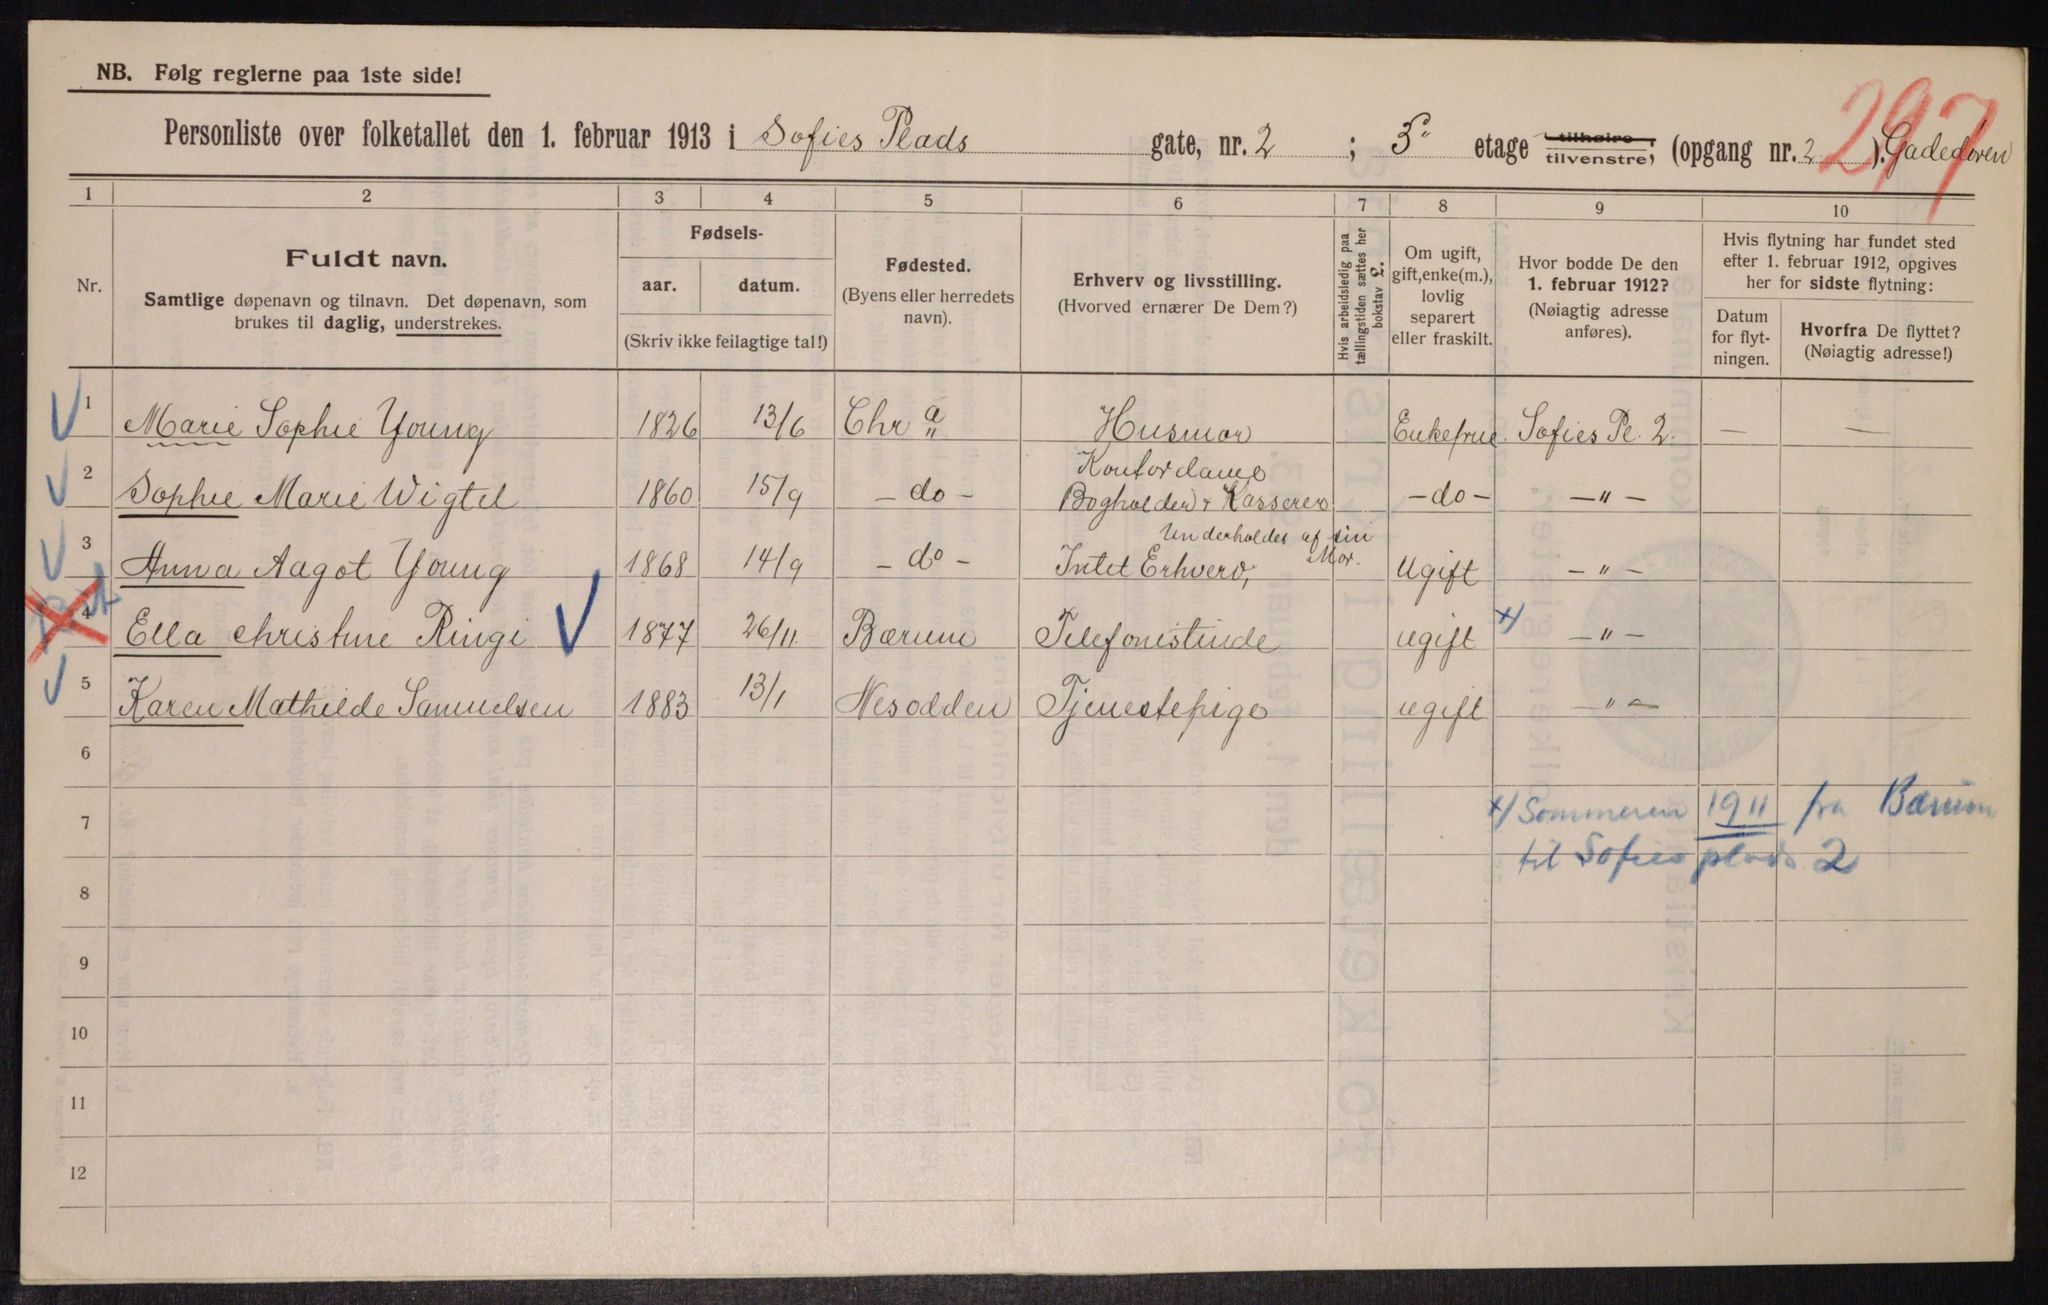 NB. Følg reglerne paa 1ste side!
297
Personliste over folketallet den 1. februar 1913 i Sofies Plads gate, nr. 2 ; 3" etage tilhøire, tilvenstre, (opgang nr. 2 ). Gadedøren
1 2 3 4 5 6 7 8 9 10
Nr.
Fuldt navn.
Samtlige døpenavn og tilnavn. Det døpenavn, som
brukes til daglig, understrekes.
Fødsels-
aar. datum.
(Skriv ikke feilagtige tal!)
Fødested.
(Byens eller herredets
navn).
Erhverv og livsstilling.
(Hvorved ernærer De Dem?)
Hvis arbeidsledig paa
tællingstiden sættes her
bokstav L.
Om ugift,
gift, enke(m.),
lovlig
separert
eller fraskilt.
Hvor bodde De den
1. februar 1912?
(Nøiagtig adresse
anføres).
Hvis flytning har fundet sted
efter 1. februar 1912, opgives
her for sidste flytning:
Datum
for flyt-
ningen.
Hvorfra De flyttet?
(Nøiagtig adresse!)
1 Marie Sophie Young 1826 13/6 Chr a " Husmor Enkefrue. Sofies Pl. 2. — —
2 Sophie Marie Wigtel 1860 15/9 - do - Kontordame
Bogholder & Kasserer - do - - " -
3 Anna Aagot Young 1868 14/9 - do - Intet Erhverv, Underholdes af sin
Mor. Ugift - " -
4 Ella Christine Ringi 1877 26/11 Bærum Telefonistinde ugift x) - " -
5 Karen Mathilde Samuelsen 1883 13/1 Nesodden Tjenestepige ugift - " -
6
7 x) Sommeren 1911 fra Bærum
til Sofies plads 2
8
9
10
11
12